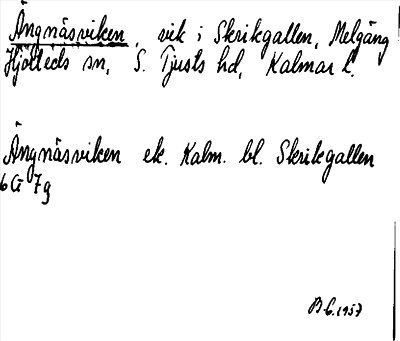 Ängnäsviken, vik i Skrikgallen, Melgäng
Hjorteds sn, S. Tjusts hd, Kalmar l.
Ängnäsviken ek. Kalm. bl. Skrikgallen
6G 7g
B-G. 1957